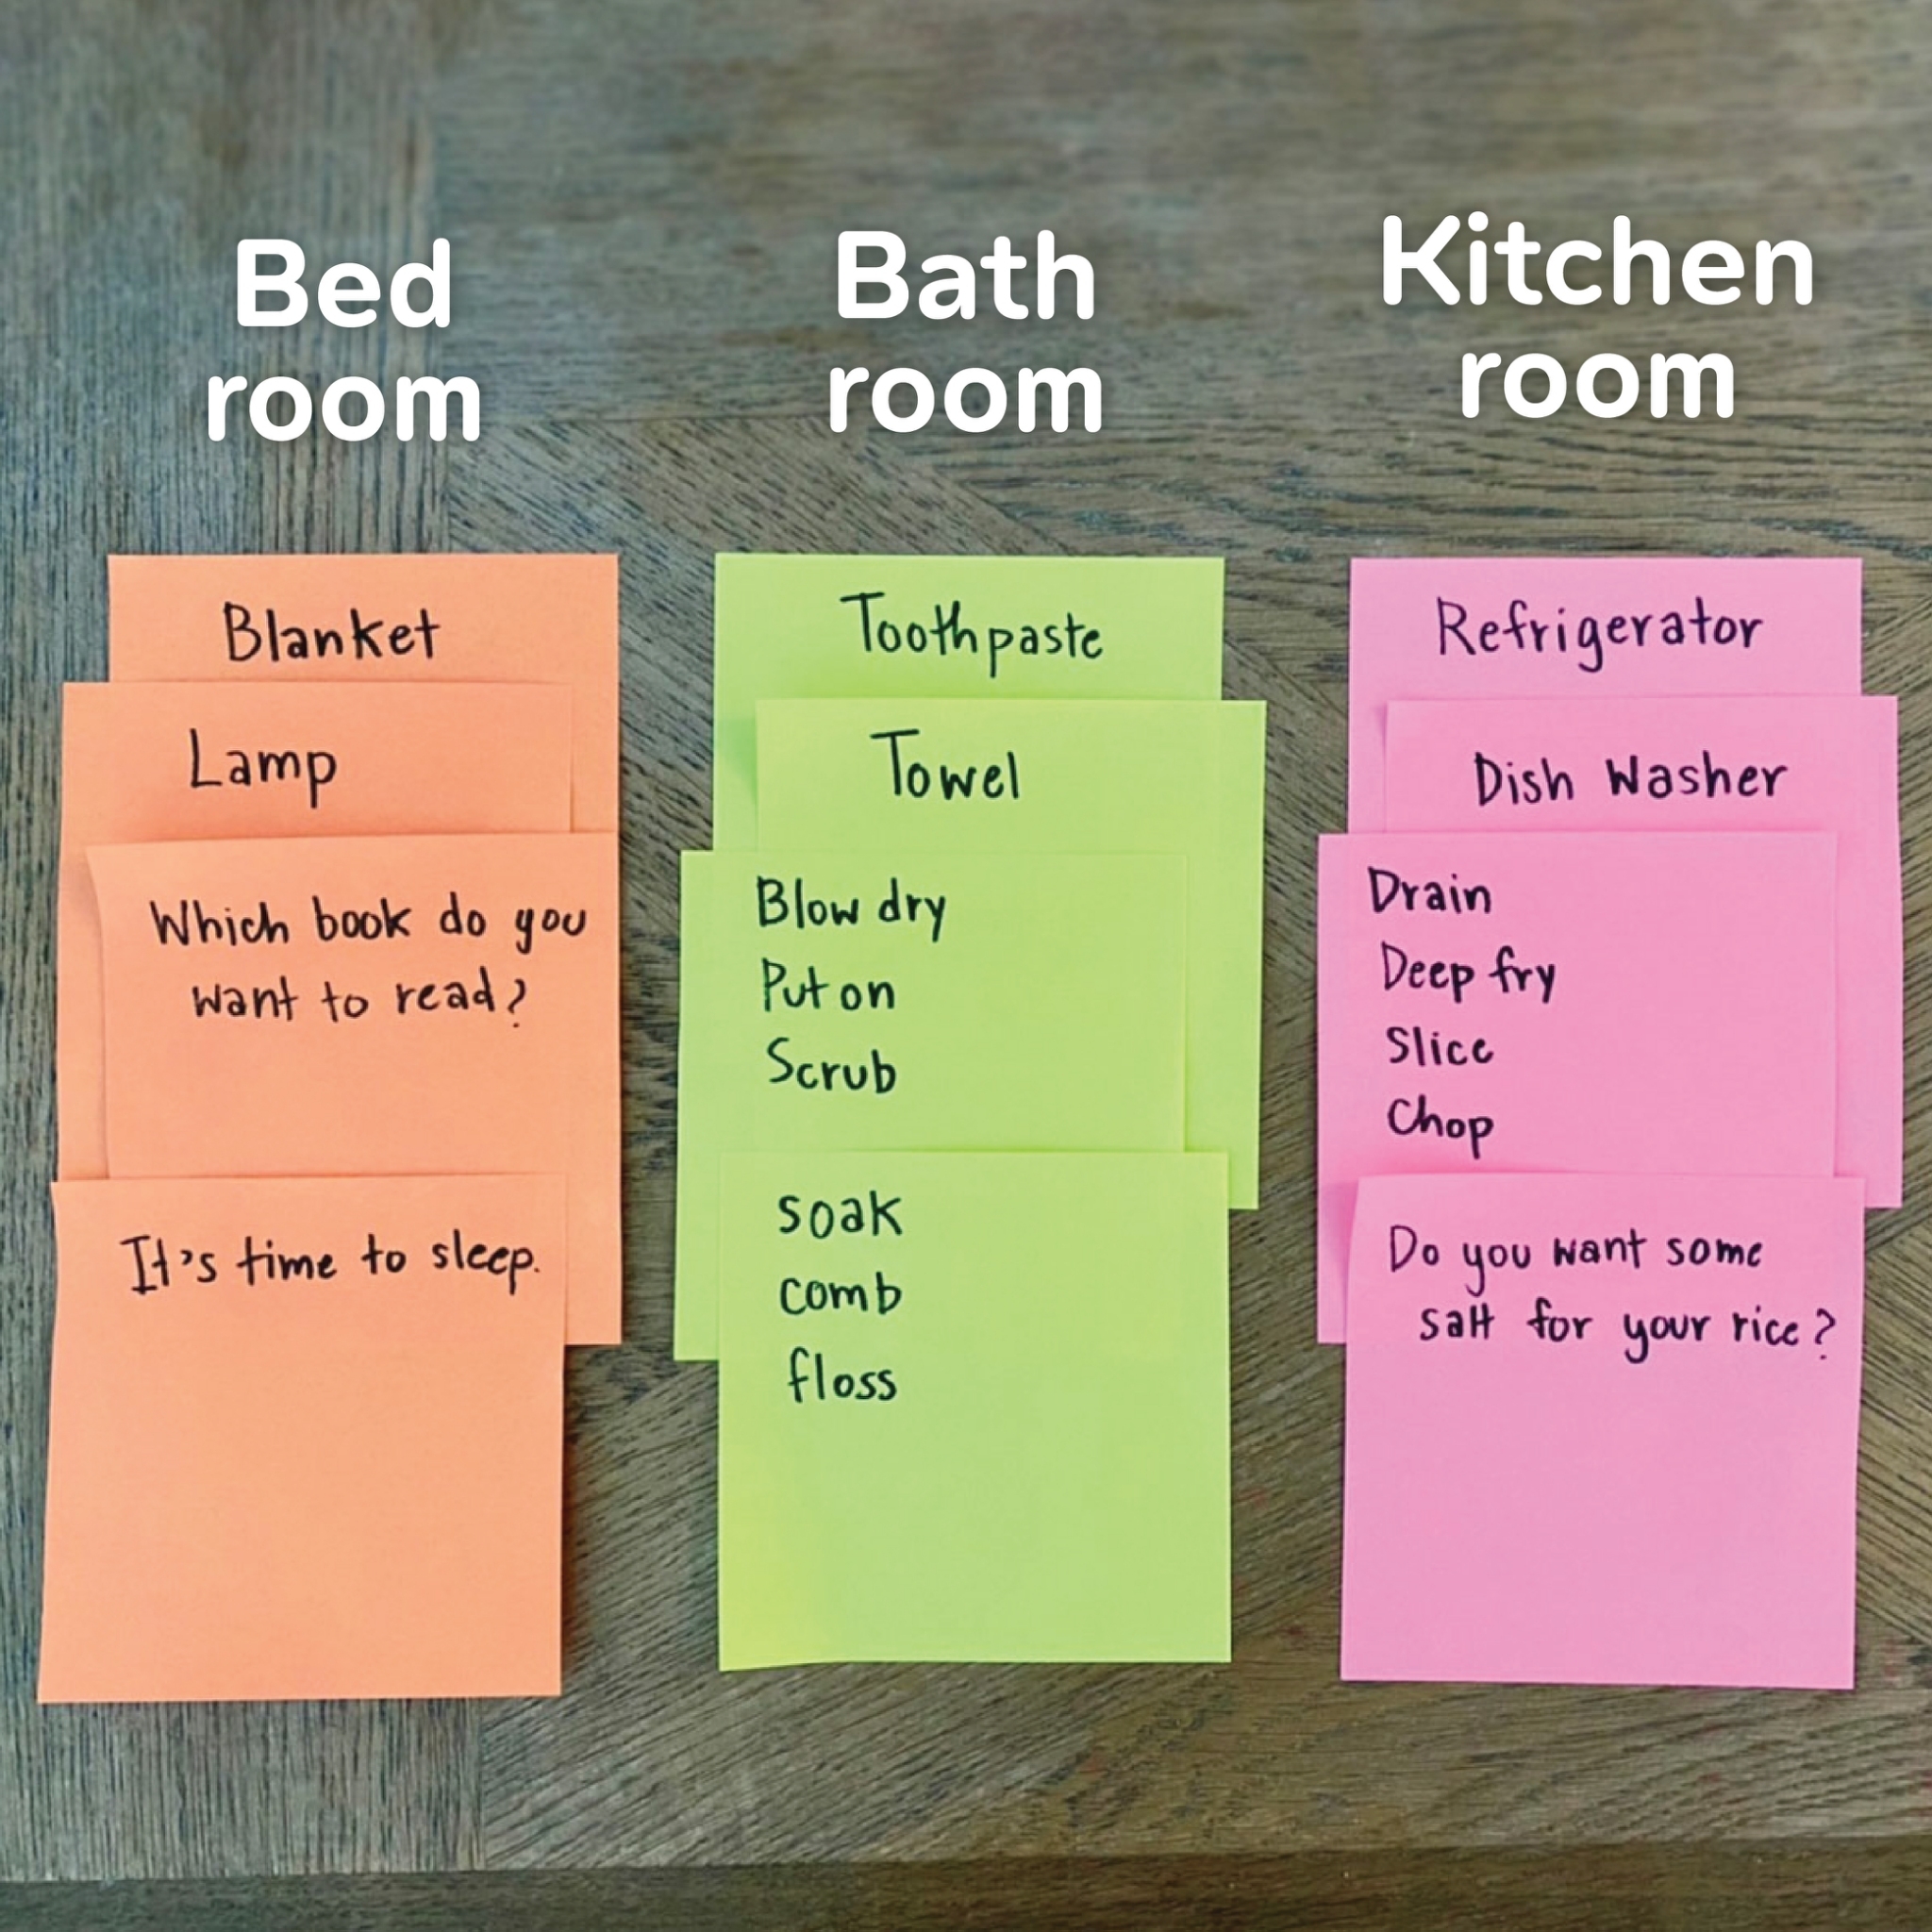 Bed
room
Blanket
Lamp
Which book do you
want to read?
It's time to sleep.
Bath
room
Toothpaste
Towel
Blow dry
Put on
Scrub
soak
comb
floss
Kitchen
room
Refrigerator
Dish Washer
Drain
Deep fry
Slice
Chop
Do you want some
salt for your rice?